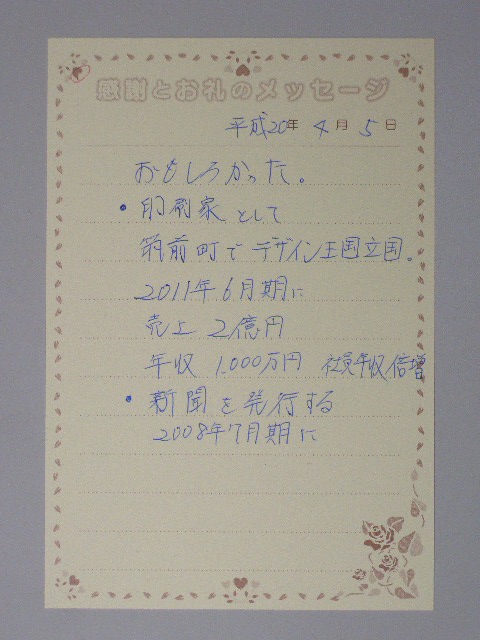 感謝とお礼のメッセージ
平成20年 4月 5日
おもしろかった。
・印刷家として
筑前町でデザイン王国立国。
2011年6月期に
売上 2億円
年収 1,000万円 社員年収倍増
・新聞を発行する
2008年7月期に